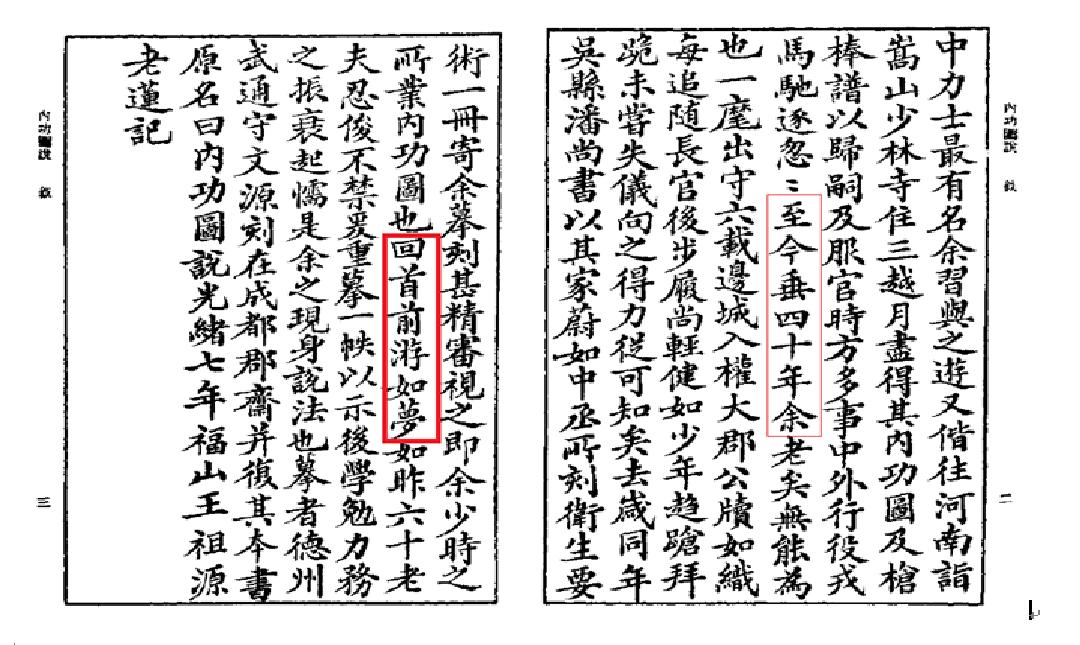 內功圖說 敍
二
中力士最有名余習與之遊又偕往河南詣
嵩山少林寺住三越月盡得其內功圖及槍
棒譜以歸嗣及服官時方多事中外行役戎
馬馳逐忽〻至今垂四十年余老矣無能為
也一麾出守六載邊城入權大郡公牘如織
每追隨長官後步履尚輕健如少年趨蹌拜
跪未嘗失儀向之得力從可知矣去歲同年
吳縣潘尚書以其家蔚如中丞所刻衛生要
術一冊寄余摹刻甚精審視之即余少時之
所業內功圖也回首前游如夢如昨六十老
夫忍俊不禁爰重摹一帙以示後學勉力務
之振衰起懦是余之現身說法也摹者德州
武通守文源刻在成都郡齋并復其本書
原名曰內功圖說光緒七年福山王祖源
老蓮記
內功圖說 敍
三